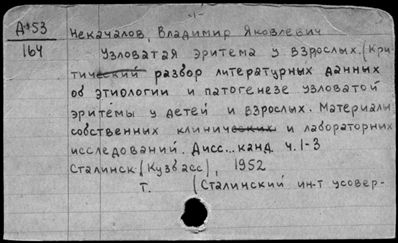 -1-
Д⁴53
164
Некачалов, Владимир Яковлевич
Узловатая эритема у взрослых. (Кри-
тический разбор литературных данных
об этиологии и патогенезе узловатой
эритемы у детей и взрослых. Материалы
собственных клинических и лабораторних
исследований. Дисс... канд. ч. 1-3
Сталинск (Кузбасс), 1952
т. (Сталинский ин-т усовер-